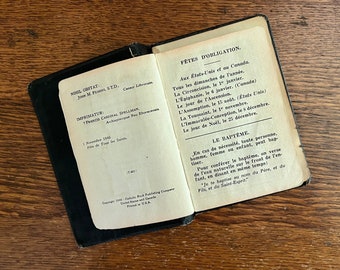 NIHIL OBSTAT.
JOHN M. FEARNS, S.T.D.,
Censor Librorum.
IMPRIMATUR
FRANCIS CARDINAL SPELLMAN,
Archiepiscopus Neo Eboracensis
Fête de Tous les Saints.
Printed in U.S.A.
FÊTES D'OBLIGATION.
Aux États-Unis et au Canada.
Tous les dimanches de l'année.
La Circoncision, le 1er janvier.
L'Épiphanie, le 6 janvier. (Canada)
Le jour de l'Ascension.
L'Assomption, le 15 août. (États Unis)
La Toussaint, le 1er novembre.
L'Immaculée-Conception, le 8 décembre.
Le jour de Noël, le 25 décembre.
LE BAPTÊME.
En cas de nécessité, toute personne,
homme, femme ou enfant, peut bap-
tiser.
Pour conférer le baptême, on verse
de l'eau naturelle sur le front de l'en-
fant, en disant en même temps:
"Je te baptise au nom du Père, et du
Fils, et du Saint-Esprit."